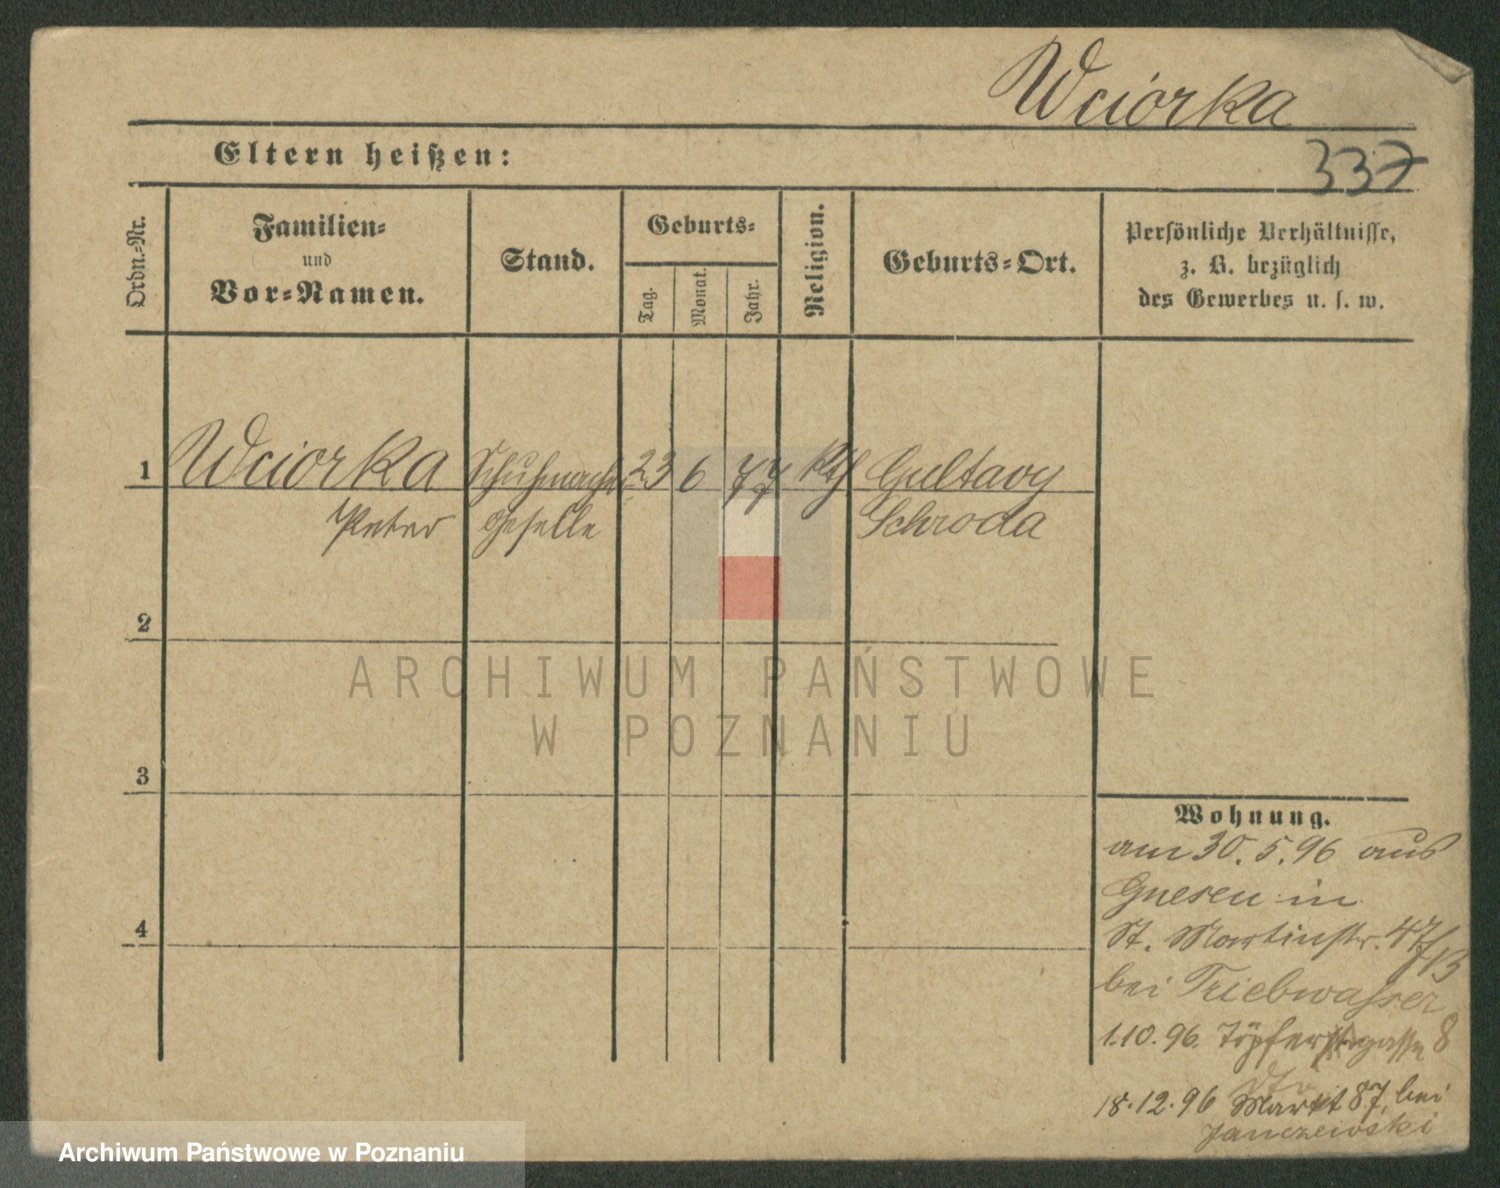 Wciórka
337
Eltern heißen:
Ordn.-Nr.
Familien-
und
Vor-Namen.
Stand.
Geburts-
Tag.
Monat.
Jahr.
Religion.
Geburts-Ort.
Persönliche Verhältnisse,
z. B. bezüglich
des Gewerbes u. s. w.
1 Wciorka Schuhmacher 23 6 77 kth Gultowy
Peter geselle Schroda
2
3
4
Wohnung.
am 30.5.96 aus
Gnesen in
St. Martinstr. 47/
bei Triebwasser
1.10.96. Töpfergasse 8
18.12.96 Markt 87, bei
Janczewski
ARCHIWUM PAŃSTWOWE
W POZNANIU
Archiwum Państwowe w Poznaniu